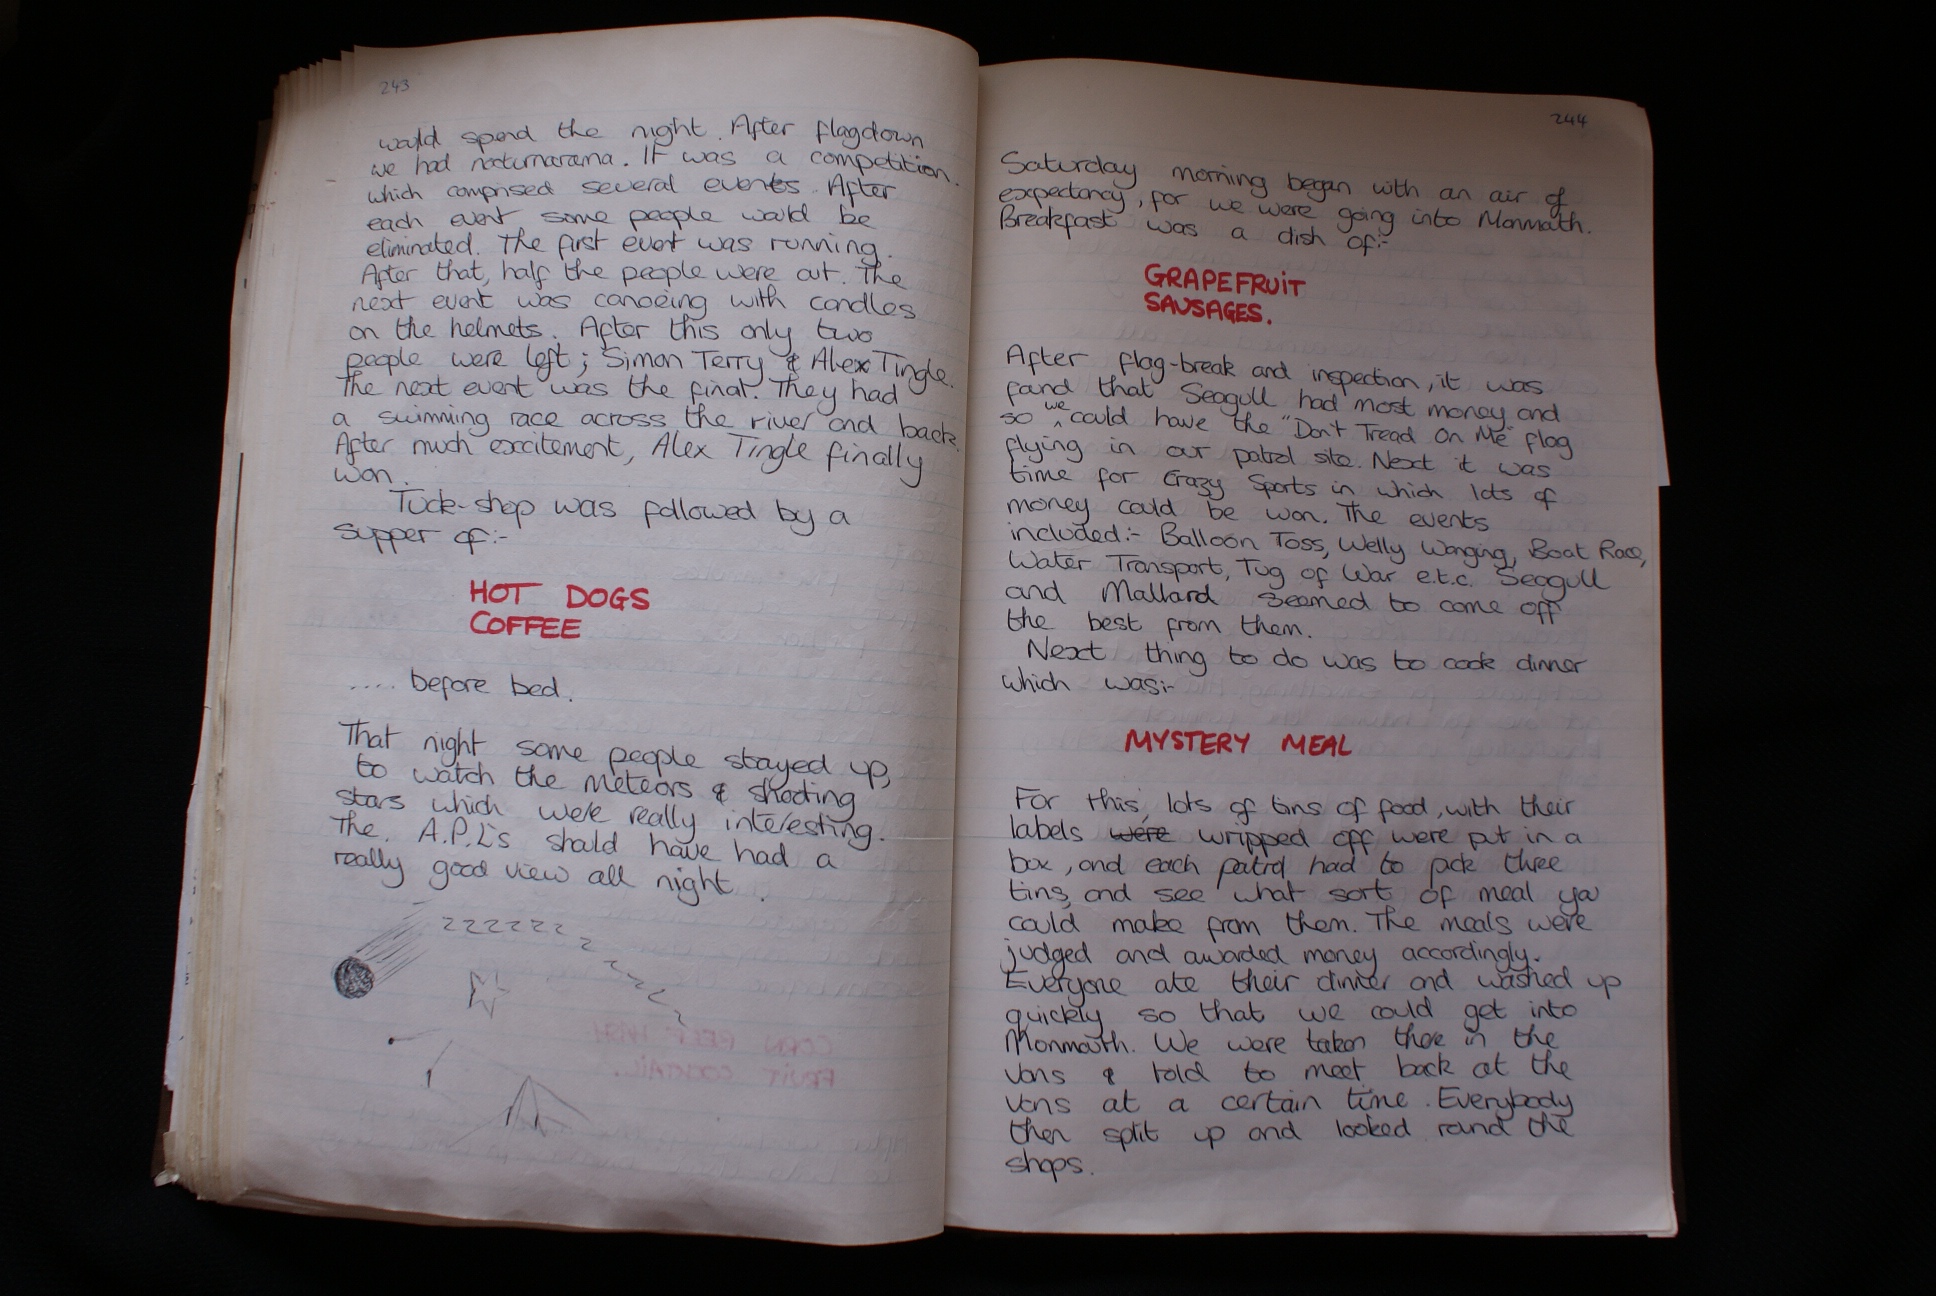 243
would spend the night. After flagdown
we had nocturnarama. It was a competition.
which comprised several events. After
each event some people would be
eliminated. The first event was running.
After that, half the people were out. The
next event was canoeing with candles
on the helmets. After this only two
people were left; Simon Terry & Alex Tingle.
The next event was the final. They had
a swimming race across the river and back.
After much excitement, Alex Tingle finally
won.
Tuck-shop was followed by a
supper of:-
HOT DOGS
COFFEE
.... before bed.
That night some people stayed up,
to watch the meteors & shooting
stars which were really interesting.
The. A.P.L's should have had a
really good view all night.
zzzzzzzzzzzzz
244
Saturday morning began with an air of
expectancy, for we were going into Monmouth.
Breakfast was a dish of:-
GRAPEFRUIT
SAUSAGES.
After flag-break and inspection, it was
found that Seagull had most money and
so we could have the "Don't Tread On Me" flag
flying in our patrol site. Next it was
time for Crazy Sports in which lots of
money could be won. The events
included:- Balloon Toss, Welly Wanging, Boat Race,
Water Transport, Tug of War e.t.c. Seagull
and Mallard seemed to come off
the best from them.
Next thing to do was to cook dinner
which was:-
MYSTERY MEAL
For this, lots of tins of food, with their
labels were wripped off were put in a
box, and each patrol had to pick three
tins, and see what sort of meal you
could make from them. The meals were
judged and awarded money accordingly.
Everyone ate their dinner and washed up
quickly so that we could get into
Monmouth. We were taken there in the
vans & told to meet back at the
vans at a certain time. Everybody
then split up and looked round the
shops.